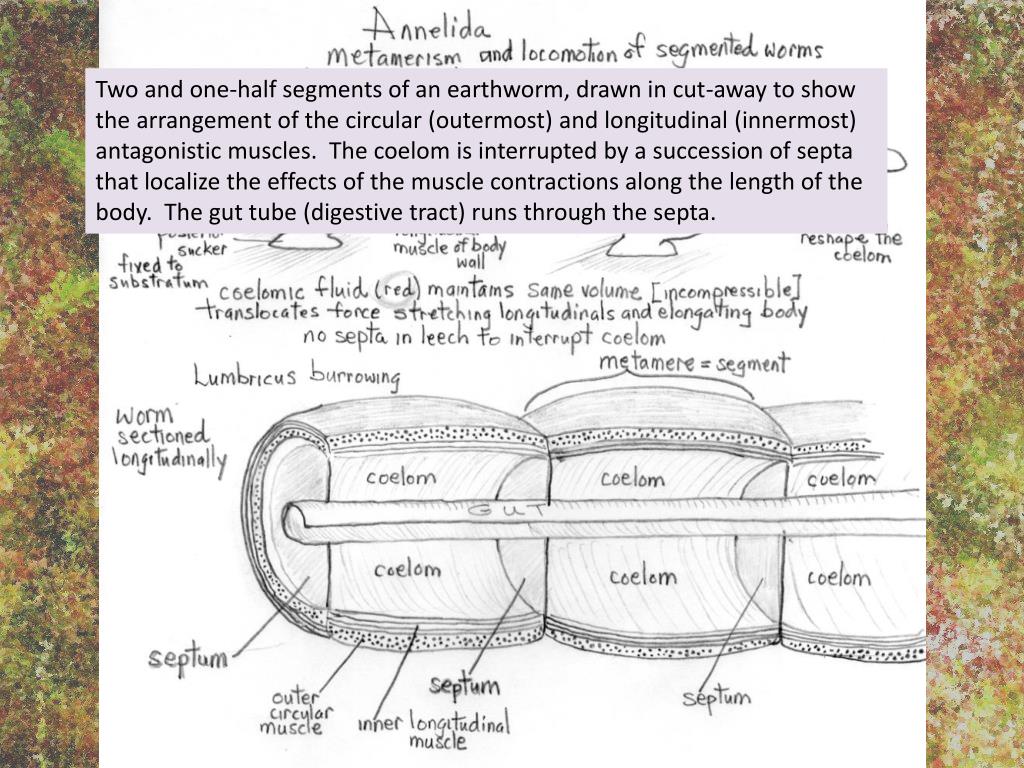 Annelida
metamerism and locomotion of segmented worms
Two and one-half segments of an earthworm, drawn in cut-away to show
the arrangement of the circular (outermost) and longitudinal (innermost)
antagonistic muscles. The coelom is interrupted by a succession of septa
that localize the effects of the muscle contractions along the length of the
body. The gut tube (digestive tract) runs through the septa.
sucker
fixed to
substratum
muscle of body
wall
reshape the
coelom
coelomic fluid (red) maintains same volume [incompressible]
translocates force stretching longitudinals and elongating body
no septa in leech to interrupt coelom
metamere = segment
Lumbricus burrowing
worm
sectioned
longitudinally
coelom
coelom
coelom
GUT
coelom
coelom
coelom
septum
outer
circular
muscle
inner longitudinal
muscle
septum
septum